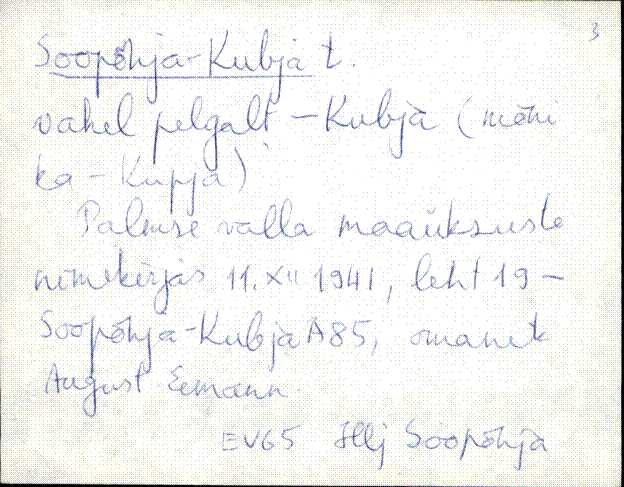 3
Soopõhja-Kubja t.
vahel pelgalt - Kubja (mõni
ka - Kupja)
Palmse valla maaüksuste
nimekirjas 11.XII 1941, leht 19 -
Soopõhja-Kubja A85, omanik
August Eemann.
EV65 Hlj Soopõhja